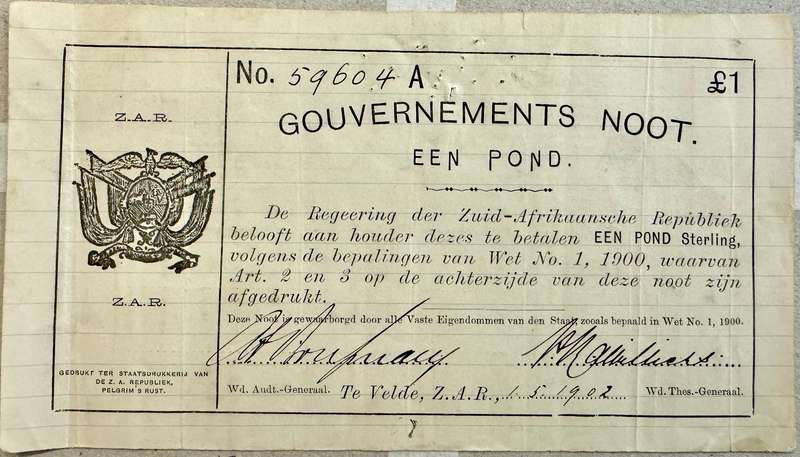 No. 59604 A
£1
Z.A.R.
GOUVERNEMENTS NOOT.
EEN POND.
De Regeering der Zuid-Afrikaansche Republiek
belooft aan houder dezes te betalen EEN POND Sterling,
volgens de bepalingen van Wet No. 1, 1900, waarvan
Art. 2 en 3 op de achterzijde van deze noot zijn
afgedrukt.
Z.A.R.
Deze Noot is gewaarborgd door alle Vaste Eigendommen van den Staat, zooals bepaald in Wet No. 1, 1900.
GEDRUKT TER STAATSDRUKKERIJ VAN
DE Z. A. REPUBLIEK,
PELGRIM'S RUST.
Wd. Audt.-Generaal. Te Velde, Z.A.R., 1.5.1902 Wd. Thes.-Generaal.